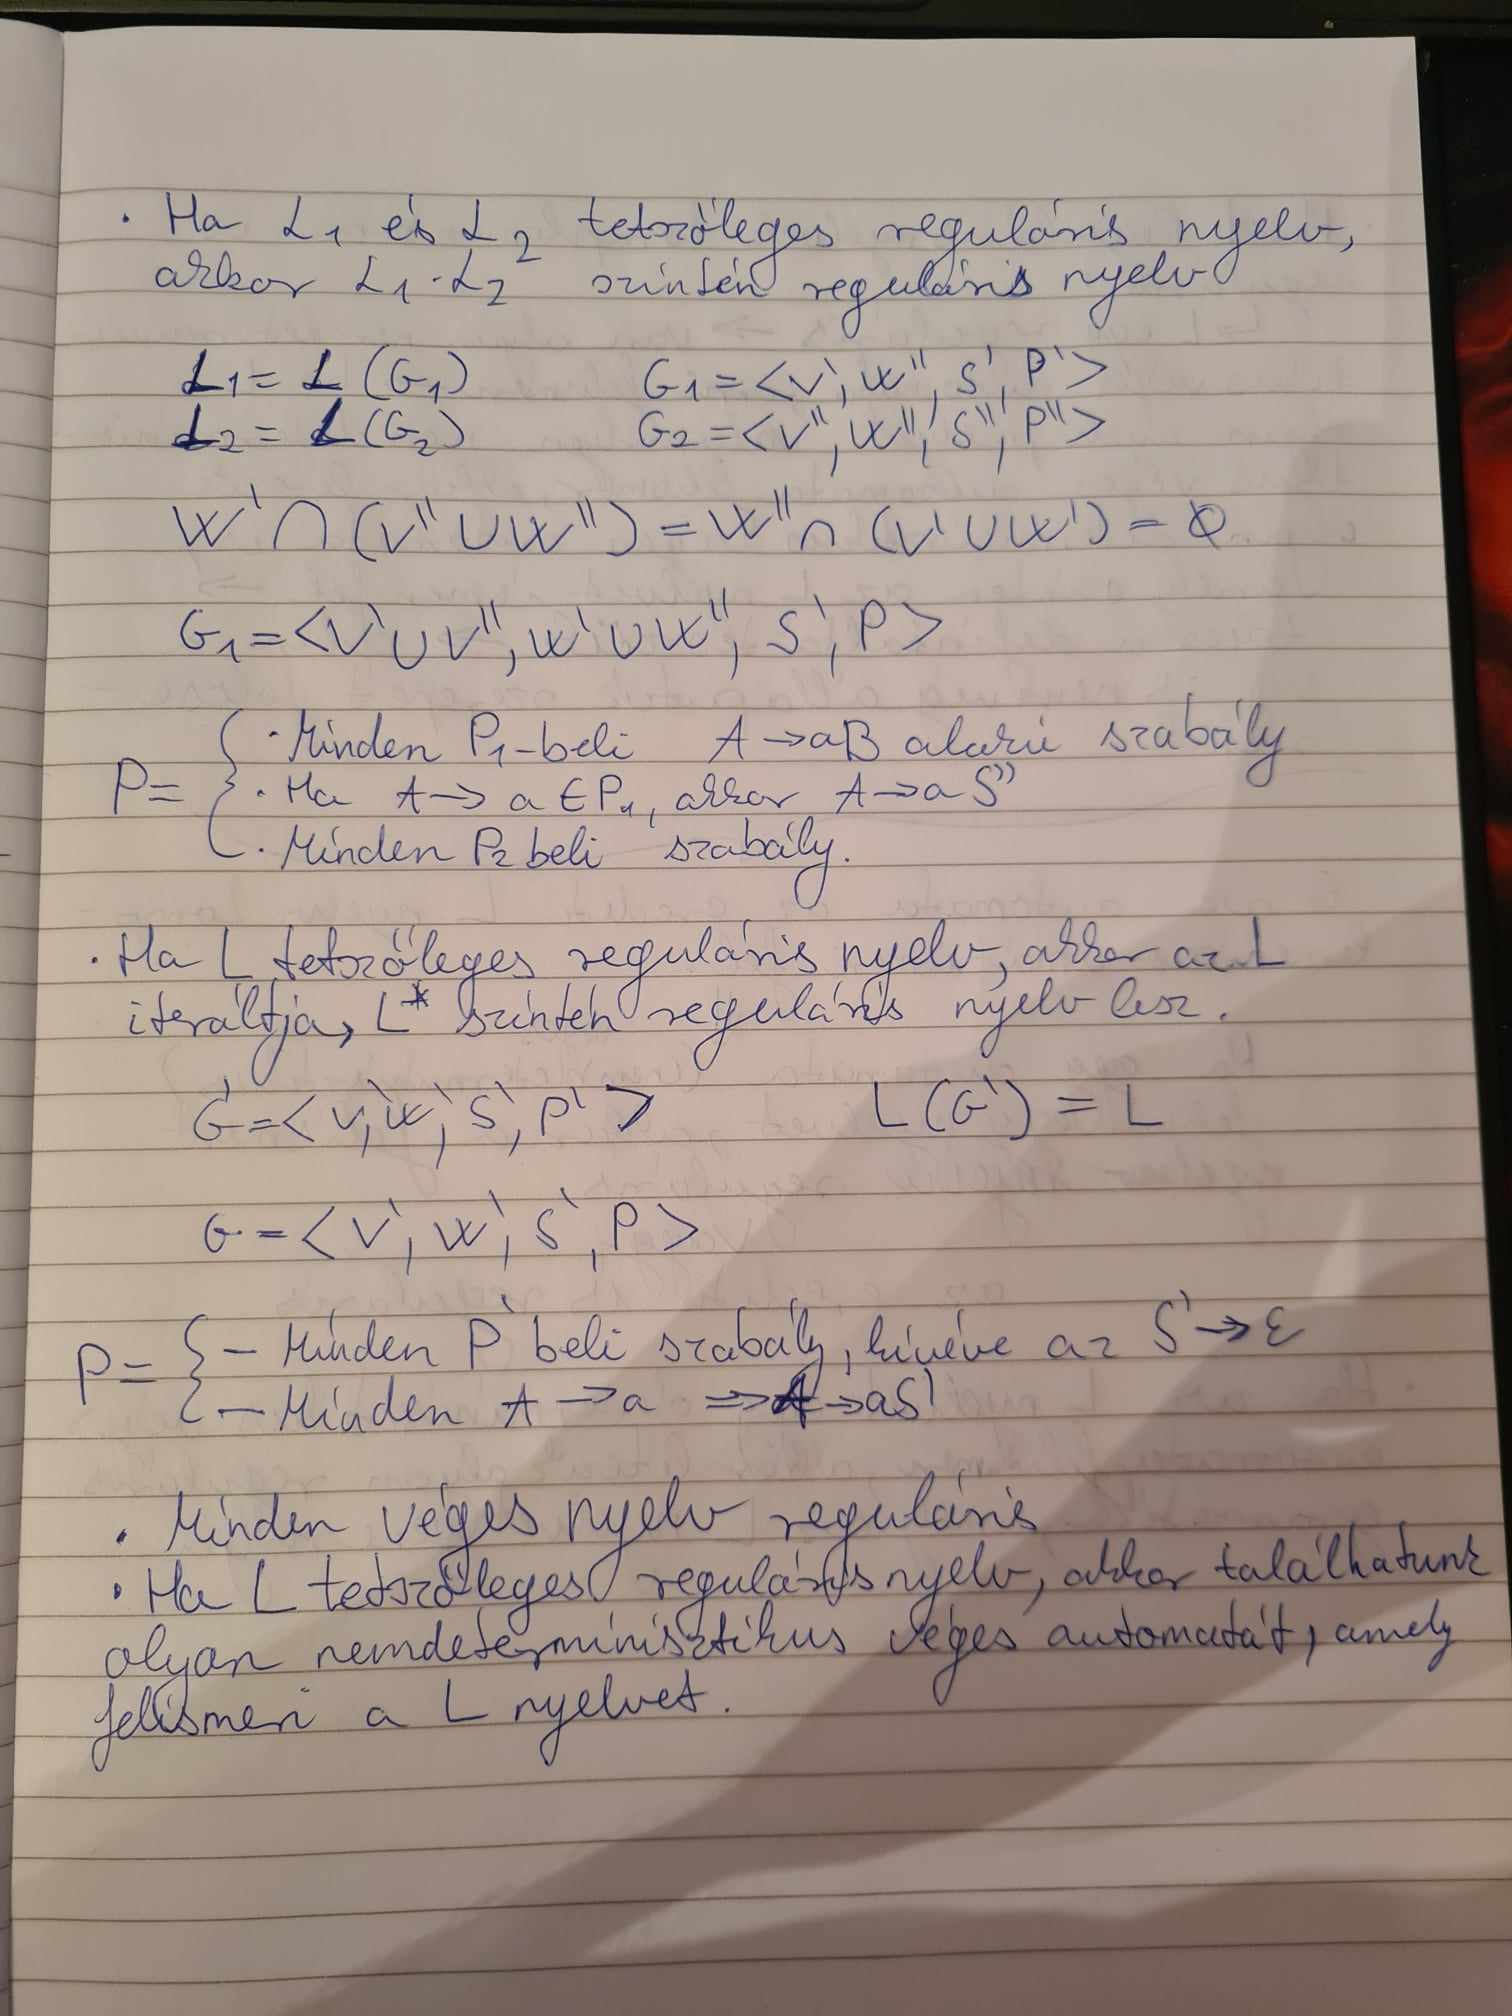 · Ha L1 és L2 tetszőleges reguláris nyelv,
akkor L1·L2 szintén reguláris nyelv
L1 = L(G1) G1 = <V', W'', S', P'>
L2 = L(G2) G2 = <V'', W'', S'', P''>
W' ∩ (V'' ∪ W'') = W'' ∩ (V' ∪ W') = Ø
G1 = <V' ∪ V'', W' ∪ W'', S', P>
P = { · Minden P1-beli A → aB alakú szabály
· Ha A → a ∈ P1, akkor A → a S''
· Minden P2 beli szabály.
· Ha L tetszőleges reguláris nyelv, akkor az L
iteráltja, L* szintén reguláris nyelv lesz.
G' = <V', W', S', P'> L(G') = L
G = <V', W', S', P>
P = { – Minden P' beli szabály, kivéve az S' → ε
– Minden A → a ⇒ A → aS'
· Minden véges nyelv reguláris
· Ha L tetszőleges reguláris nyelv, akkor találhatunk
olyan nemdeterminisztikus véges automatát, amely
felismeri a L nyelvet.